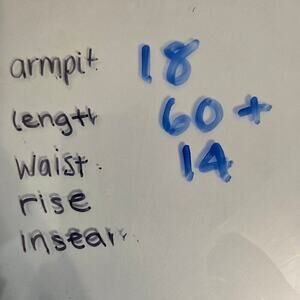 armpit 18
length 60+
waist. 14
rise
insear